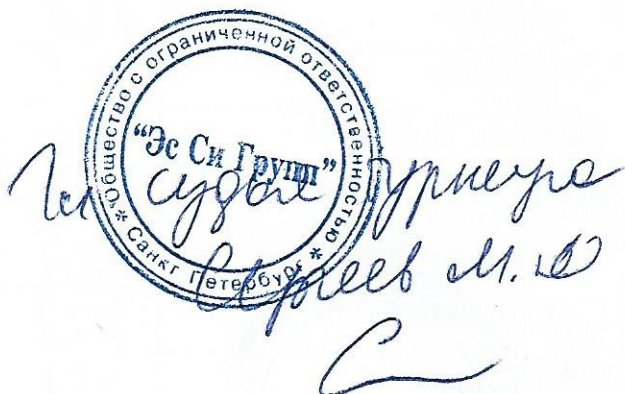 * Общество с ограниченной ответственностью *
Санкт Петербург
"Эс Си Групп"
Гл судья турнира
Сергеев М.Ю